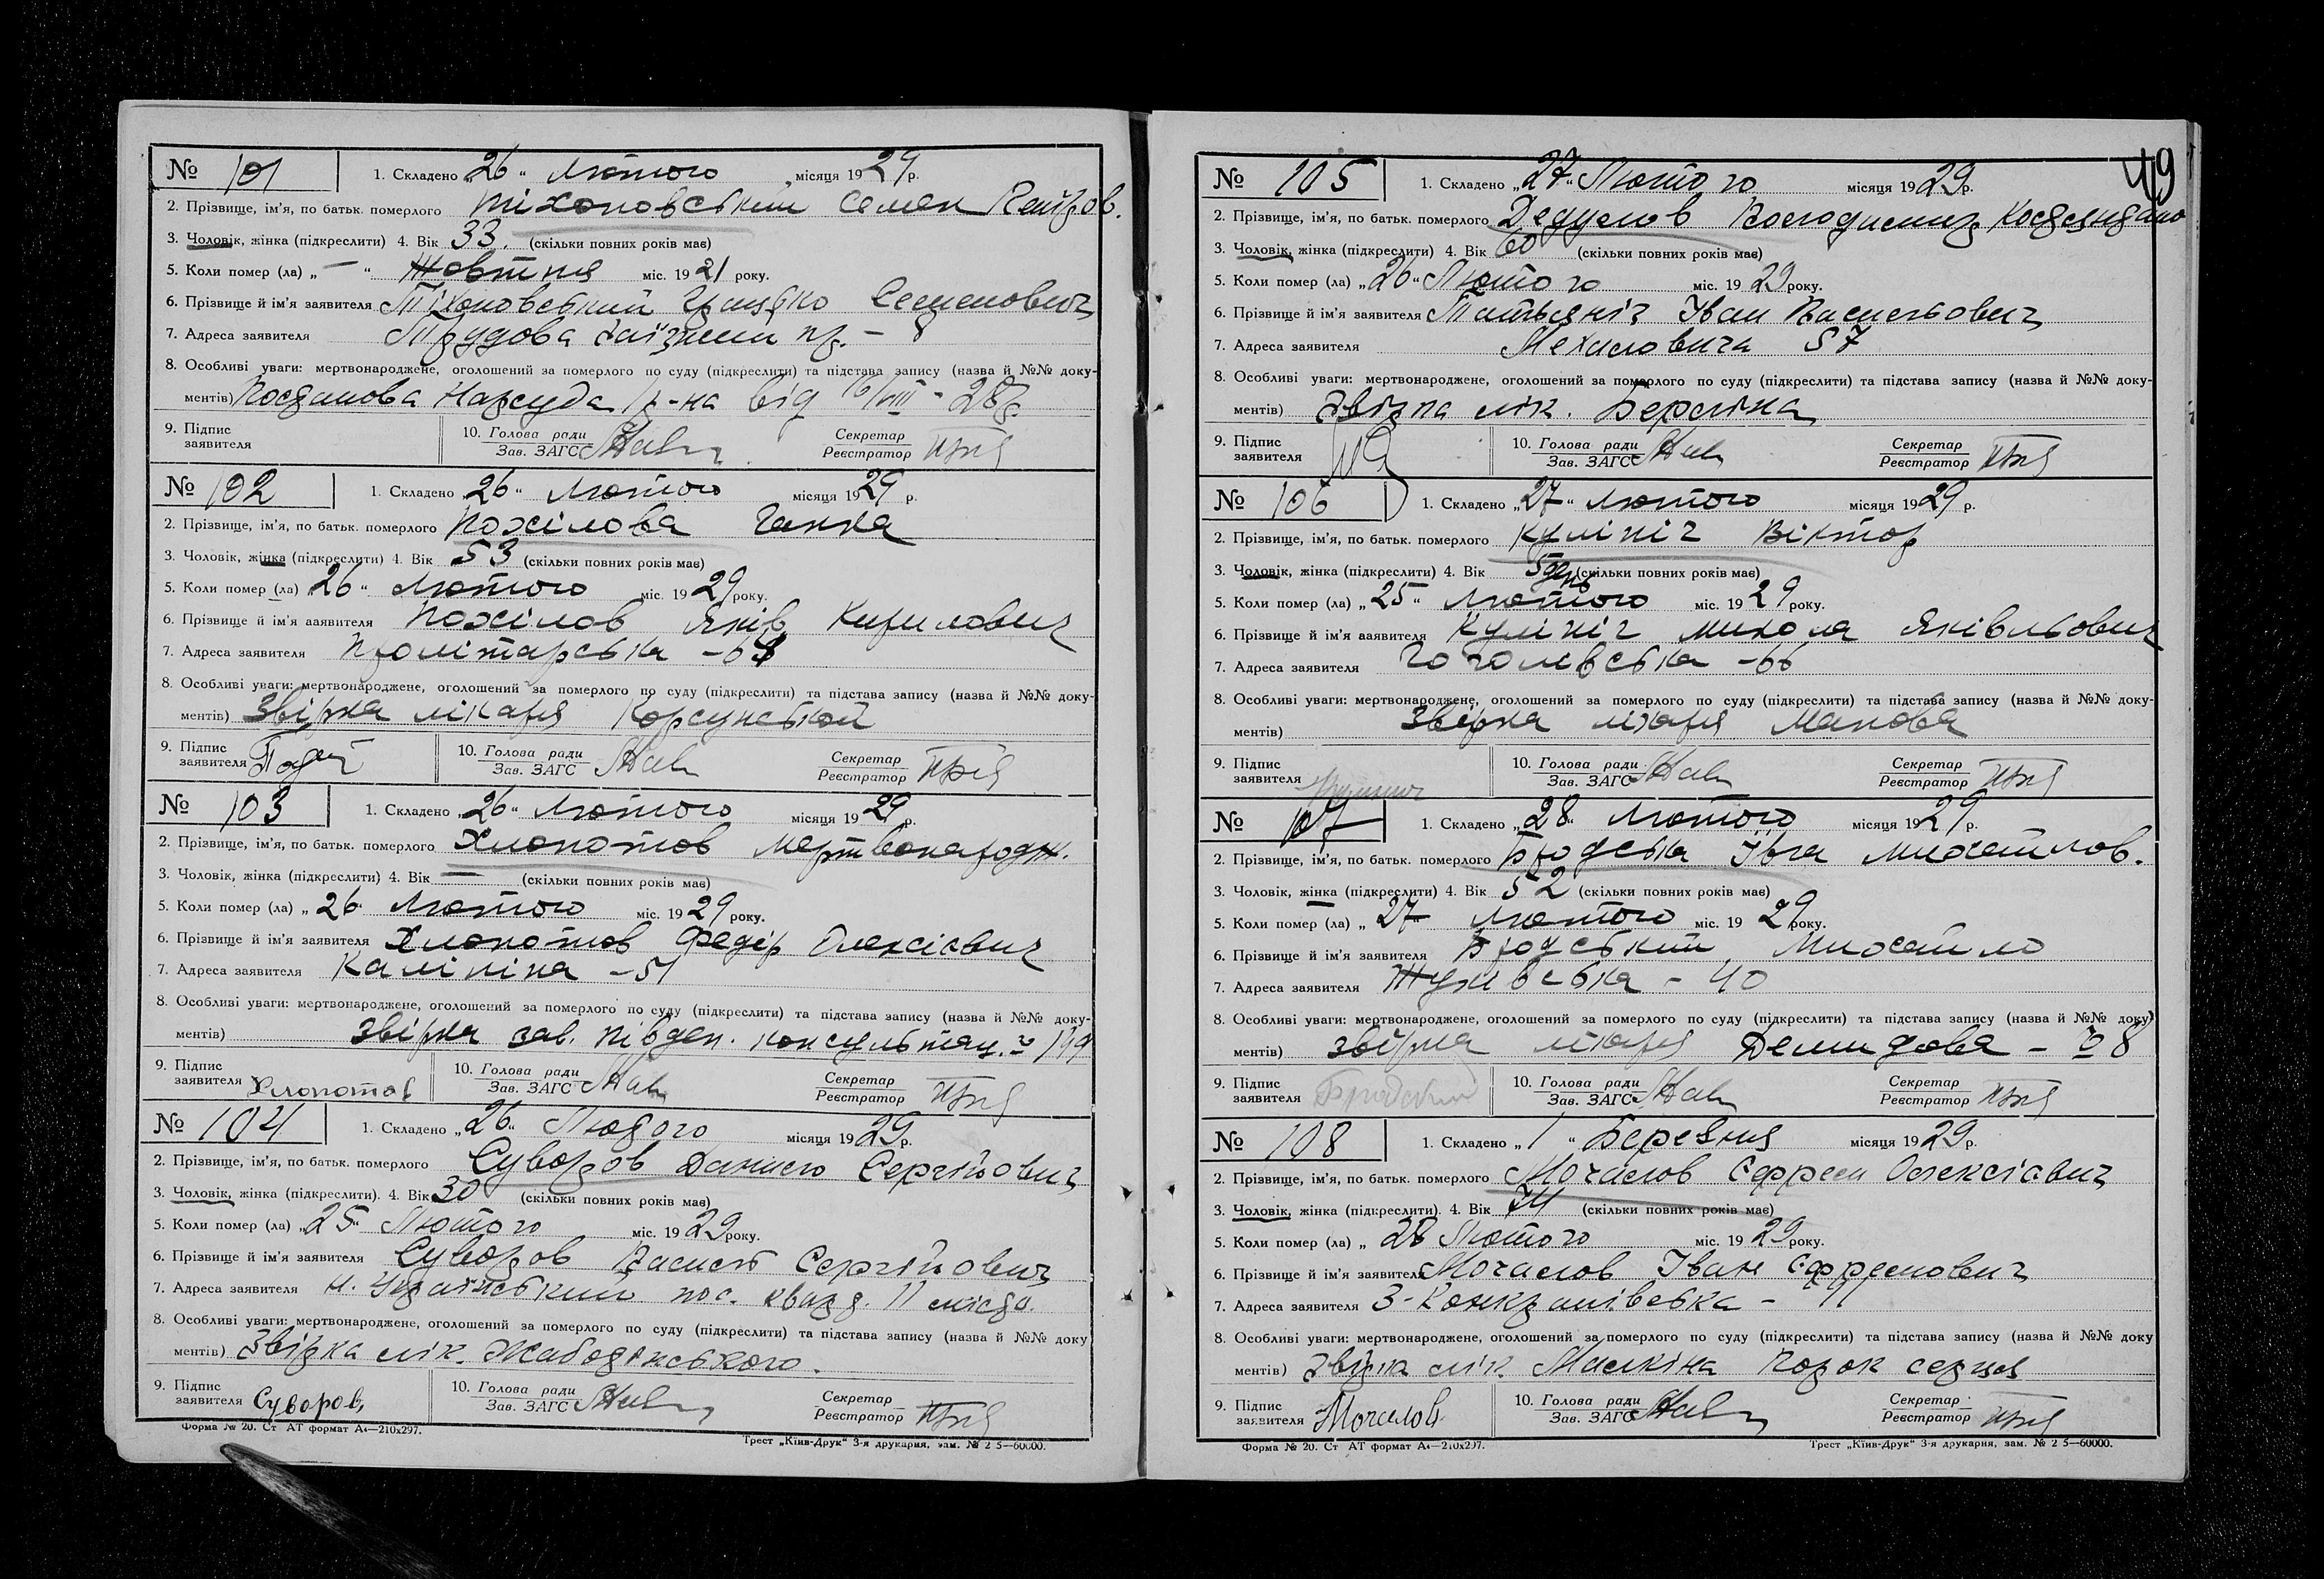 № 101 1. Складено „26“ Лютого місяця 1929 р.
2. Прізвище, ім'я, по батьк. померлого Тіхоновський Семен
3. Чоловік, жінка (підкреслити) 4. Вік 33. (скільки повних років має)
5. Коли помер (ла) „—“ Жовтня міс. 1921 року.
6. Прізвище й ім'я заявителя Тіхоновський Грицько Семенович
7. Адреса заявителя Трудова пр. – 8
8. Особливі уваги: мертвонароджене, оголошений за померлого по суду (підкреслити) та підстава запису (назва й №№ доку-
ментів) Нарсуда від 16/VIII – 28р.
9. Підпис заявителя 10. Голова ради Зав. ЗАГС Секретар Реєстратор
№ 102 1. Складено „26“ Лютого місяця 1929 р.
2. Прізвище, ім'я, по батьк. померлого Похілова Ганна
3. Чоловік, жінка (підкреслити) 4. Вік 53 (скільки повних років має)
5. Коли помер (ла) 26“ Лютого міс. 1929 року.
6. Прізвище й ім'я заявителя Похілов Яків Кирилович
7. Адреса заявителя Пролітарська –
8. Особливі уваги: мертвонароджене, оголошений за померлого по суду (підкреслити) та підстава запису (назва й №№ доку-
ментів) Звірка лікаря Корсунской
9. Підпис заявителя 10. Голова ради Зав. ЗАГС Секретар Реєстратор
№ 103 1. Складено „26“ Лютого місяця 1929 р.
2. Прізвище, ім'я, по батьк. померлого Хлопотов мертвонародж.
3. Чоловік, жінка (підкреслити) 4. Вік — (скільки повних років має)
5. Коли помер (ла) „26“ Лютого міс. 1929 року.
6. Прізвище й ім'я заявителя Хлопотов Федір Олексієвич
7. Адреса заявителя Калініна – 51
8. Особливі уваги: мертвонароджене, оголошений за померлого по суду (підкреслити) та підстава запису (назва й №№ доку-
ментів) Звірка зав. півден. консультац.
9. Підпис заявителя Хлопотов 10. Голова ради Зав. ЗАГС Секретар Реєстратор
№ 104 1. Складено „26“ Лютого місяця 1929 р.
2. Прізвище, ім'я, по батьк. померлого Суворов Данило Сергійович
3. Чоловік, жінка (підкреслити). 4. Вік 30 (скільки повних років має)
5. Коли помер (ла) „25“ Лютого міс. 1929 року.
6. Прізвище й ім'я заявителя Суворов Василь Сергійович
7. Адреса заявителя пос. кварт. 11
8. Особливі уваги: мертвонароджене, оголошений за померлого по суду (підкреслити) та підстава запису (назва й №№ доку
ментів) Звірка лік. Жаботінського.
9. Підпис заявителя Суворов 10. Голова ради Зав. ЗАГС Секретар Реєстратор
Форма № 20. Ст АТ формат А4—210x297. Трест „Київ-Друк“ 3-я друкарня, зам. № 2 5—60000.
49
№ 105 1. Складено „27“ Лютого місяця 1929 р.
2. Прізвище, ім'я, по батьк. померлого Дедулов
3. Чоловік, жінка (підкреслити) 4. Вік 60 (скільки повних років має)
5. Коли помер (ла) „26“ Лютого міс. 1929 року.
6. Прізвище й ім'я заявителя Іван Васильович
7. Адреса заявителя 57
8. Особливі уваги: мертвонароджене, оголошений за померлого по суду (підкреслити) та підстава запису (назва й №№ доку-
ментів) Звірка лік. Берліна
9. Підпис заявителя 10. Голова ради Зав. ЗАГС Секретар Реєстратор
№ 106 1. Складено „27“ Лютого місяця 1929 р.
2. Прізвище, ім'я, по батьк. померлого Кулініч Віктор
3. Чоловік, жінка (підкреслити) 4. Вік 5 день (скільки повних років має)
5. Коли помер (ла) „25“ Лютого міс. 1929 року.
6. Прізвище й ім'я заявителя Кулініч Микола Яківльович
7. Адреса заявителя Гоголевська – 66
8. Особливі уваги: мертвонароджене, оголошений за померлого по суду (підкреслити) та підстава запису (назва й №№ доку-
ментів) Звірка лікаря Манова
9. Підпис заявителя 10. Голова ради Зав. ЗАГС Секретар Реєстратор
№ 107 1. Складено „28“ Лютого місяця 1929 р.
2. Прізвище, ім'я, по батьк. померлого Бродська Івга Михайлов.
3. Чоловік, жінка (підкреслити) 4. Вік 52 (скільки повних років має)
5. Коли помер (ла) „27“ Лютого міс. 1929 року.
6. Прізвище й ім'я заявителя Бродський Михайло
7. Адреса заявителя Жуківська – 40
8. Особливі уваги: мертвонароджене, оголошений за померлого по суду (підкреслити) та підстава запису (назва й №№ доку)
ментів) Звірка лікаря Демидова – № 8
9. Підпис заявителя Бродский 10. Голова ради Зав. ЗАГС Секретар Реєстратор
№ 108 1. Складено „1“ Березня місяця 1929 р.
2. Прізвище, ім'я, по батьк. померлого Мочалов Єфрем Олексієвич
3. Чоловік, жінка (підкреслити). 4. Вік 74 (скільки повних років має)
5. Коли помер (ла) „28 Лютого міс. 1929 року.
6. Прізвище й ім'я заявителя Мочалов Іван Єфремович
7. Адреса заявителя
8. Особливі уваги: мертвонароджене, оголошений за померлого по суду (підкреслити) та підстава запису (назва й №№ доку
ментів) Звірка лік Малкіна Порок серця
9. Підпис заявителя Мочалов 10. Голова ради Зав. ЗАГС Секретар Реєстратор
Форма № 20. Ст АТ формат А4—210x297. Трест „Київ-Друк“ 3-я друкарня, зам. № 2 5—60000.